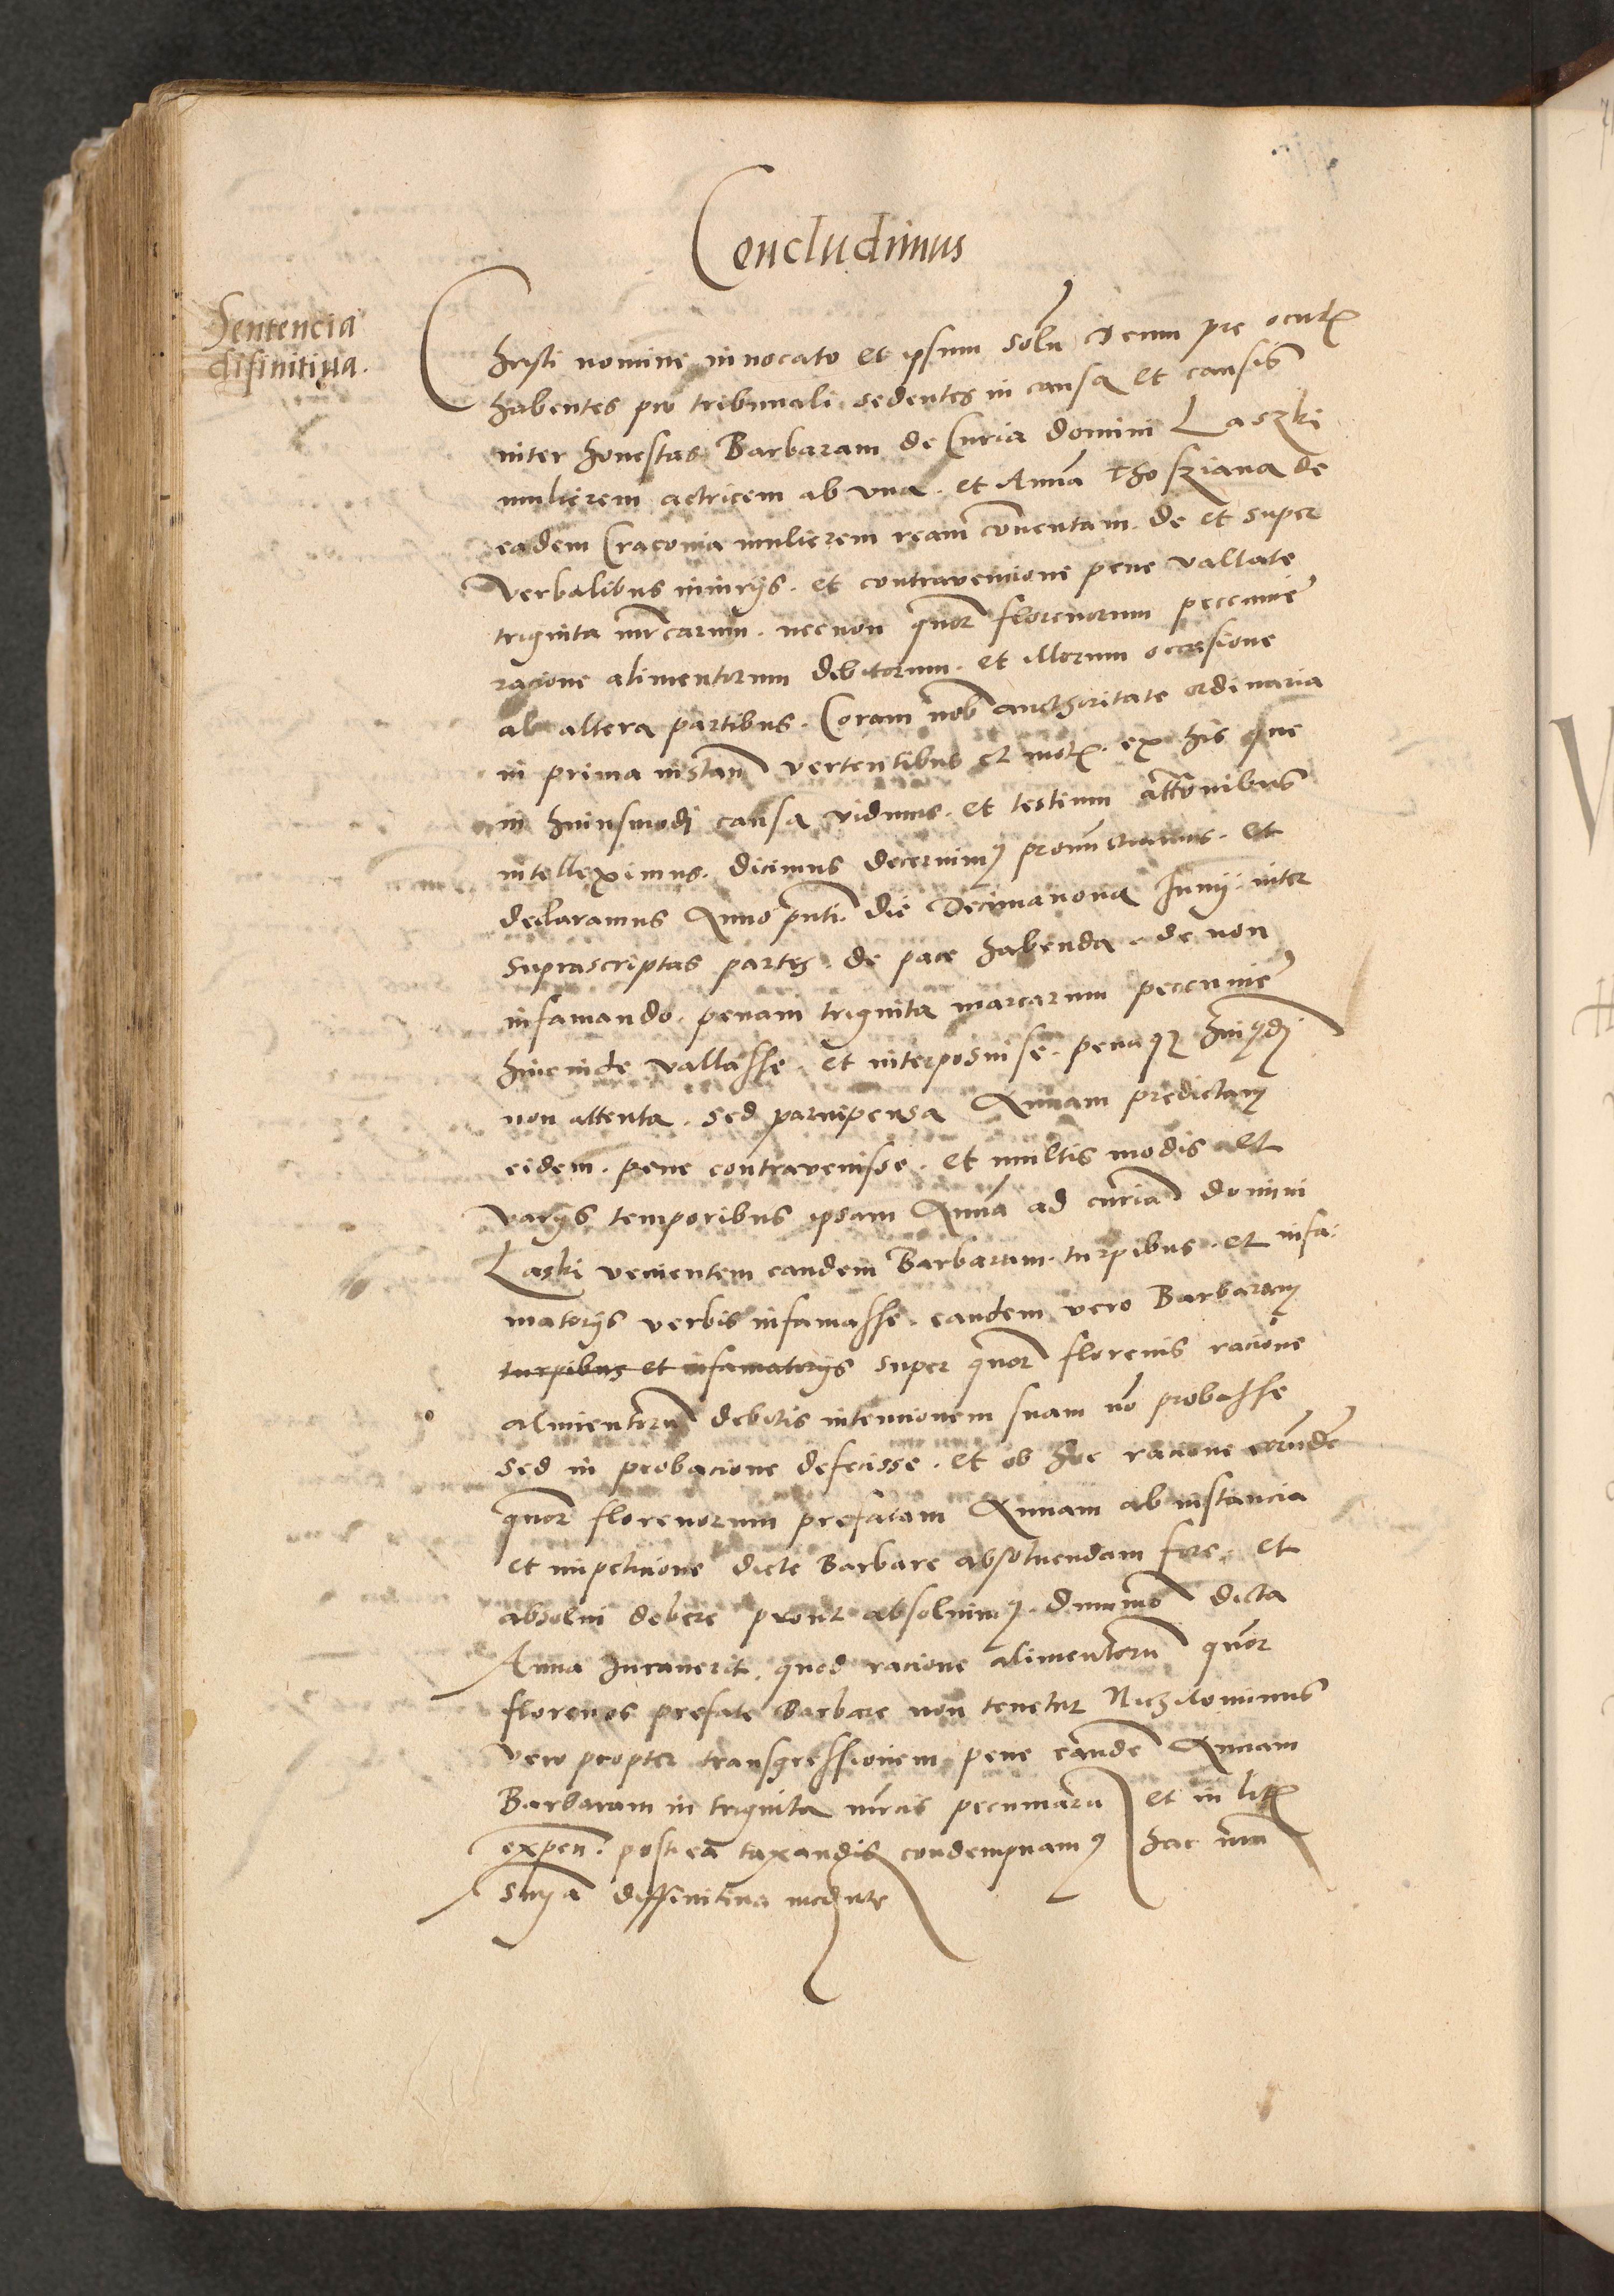 Concludimus
Sentencia
difinitiua.
Christi nomine inuocato et ipsum solu Deum pre oculis
habentes pro tribunali sedentes in causa et causis
inter honestas Barbaram de Curia domini Laszki
mulierem actricem ab vna. et Anna de
eadem Craconia mulierem ream conuentam. de et super
verbalibus iniurijs. et contravencione pene vallate
triginta mrcarum. necnon quor florenorum peccunie
racione alimentorum debitorum. et illorum occasione
ab altera partibus. Coram nob authoritate ordinaria
in prima instan vertentibus et mot. ex his que
in huiusmodi causa vidimus. et testium attonibus
intelleximus. dicimus decernim9 pronunctiamus. et
declaramus Anno pnti. die Decimanona Junij. inter
suprascriptas partes. de pace habenda. se non
infamando. penam triginta marcarum peccunie
hincinde vallasse. et interposuisse. penaq3 hui9di
non attenta. sed paruipensa Annam predictam
eidem. pene contravenisse. et multis modis et
varijs temporibus ipsam Anna ad curia domini
Laski venientem eandem Barbaram. turpibus. et infa:
matorijs verbis infamasse. eandem vero Barbaram
turpibus et infamatorijs super quor florenis racione
alimentoru debitis intencionem suam no probasse
sed in probacione defecisse. et ob hoc racione eorunde
quor florenorum prefatam Annam ab instancia
et impeticione dicte Barbare absoluendam fore. et
absolui debere prout absoluim9. dummo dicta
Anna Iurauerit. quod racione alimentoru quor
florenos prefate Barbare non tenetur Nichilominus
vero propter transgressionem pene eande Annam
Barbaram in triginta mrcis pecuniaru et in lit
expen. postea taxandis condempnam9 hac nra
snia diffinitiua mediante